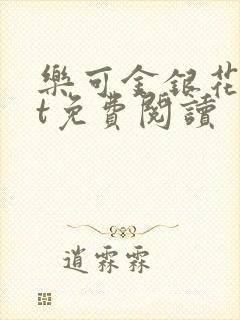 樂可金銀花
t免費閱讀
逍霖霖